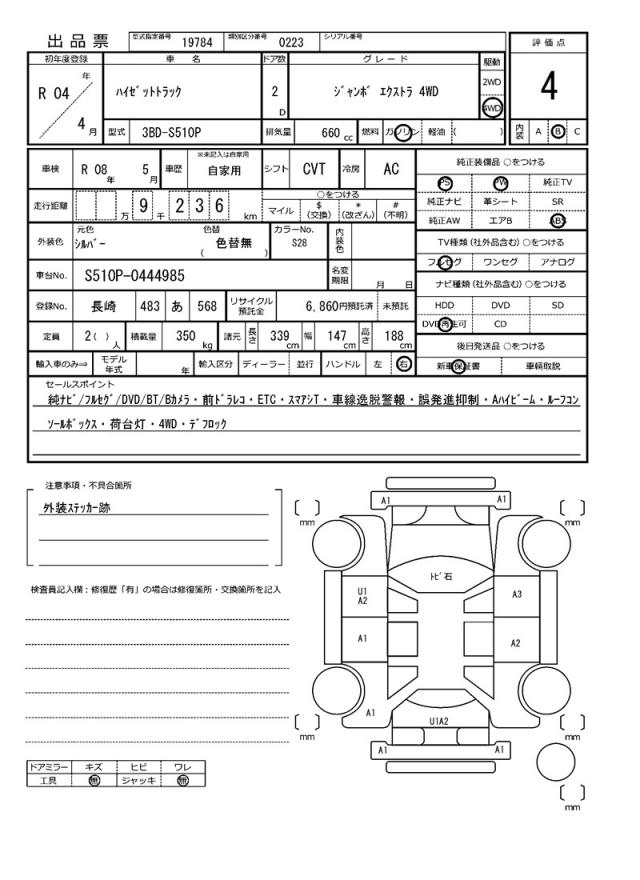 出品票 型式指定番号 19784 類別区分番号 0223 シリアル番号
評価点
4
内装 A B C
初年度登録 車名 ドア数 グレード 駆動
R 04 年 4 月
ハイゼットトラック 2 D ジャンボ エクストラ 4WD 2WD 4WD
型式 3BD-S510P 排気量 660 cc 燃料 ガソリン 軽油 ( )
車検 R 08 年 5 月 車歴 ※未記入は自家用 自家用 シフト CVT 冷房 AC
走行距離 万 9 千 2 3 6 km ○をつける
マイル $(交換) *(改ざん) #(不明)
外装色 元色 シルバー 色替 ( 色替無 ) カラーNo. S28 内装色
車台No. S510P-0444985 名変期限 月 日
登録No. 長崎 483 あ 568 リサイクル預託金 6,860円預託済 未預託
定員 2( ) 人 積載量 350 kg 諸元 長さ 339 cm 幅 147 cm 高さ 188 cm
輸入車のみ⇒ モデル年式 年 輸入区分 ディーラー 並行 ハンドル 左 右
純正装備品 ○をつける
PS PW 純正TV
純正ナビ 革シート SR
純正AW エアB ABS
TV種類 (社外品含む) ○をつける
フルセグ ワンセグ アナログ
ナビ種類 (社外品含む) ○をつける
HDD DVD SD
DVD再生可 CD
後日発送品 ○をつける
新車保証書 車輌取説
セールスポイント
純ナビ/フルセグ/DVD/BT/Bカメラ・前ドラレコ・ETC・スマアシT・車線逸脱警報・誤発進抑制・Aハイビーム・ルーフコン
ソールボックス・荷台灯・4WD・デフロック
注意事項・不具合箇所
外装ステッカー跡
検査員記入欄：修復歴「有」の場合は修復箇所・交換箇所を記入
ドアミラー キズ ヒビ ワレ
工具 無 ジャッキ 無
A1 A1
mm mm
トビ石
U1
A2
A3
A1 A2
A1
U1A2
mm mm
A1 A1
mm